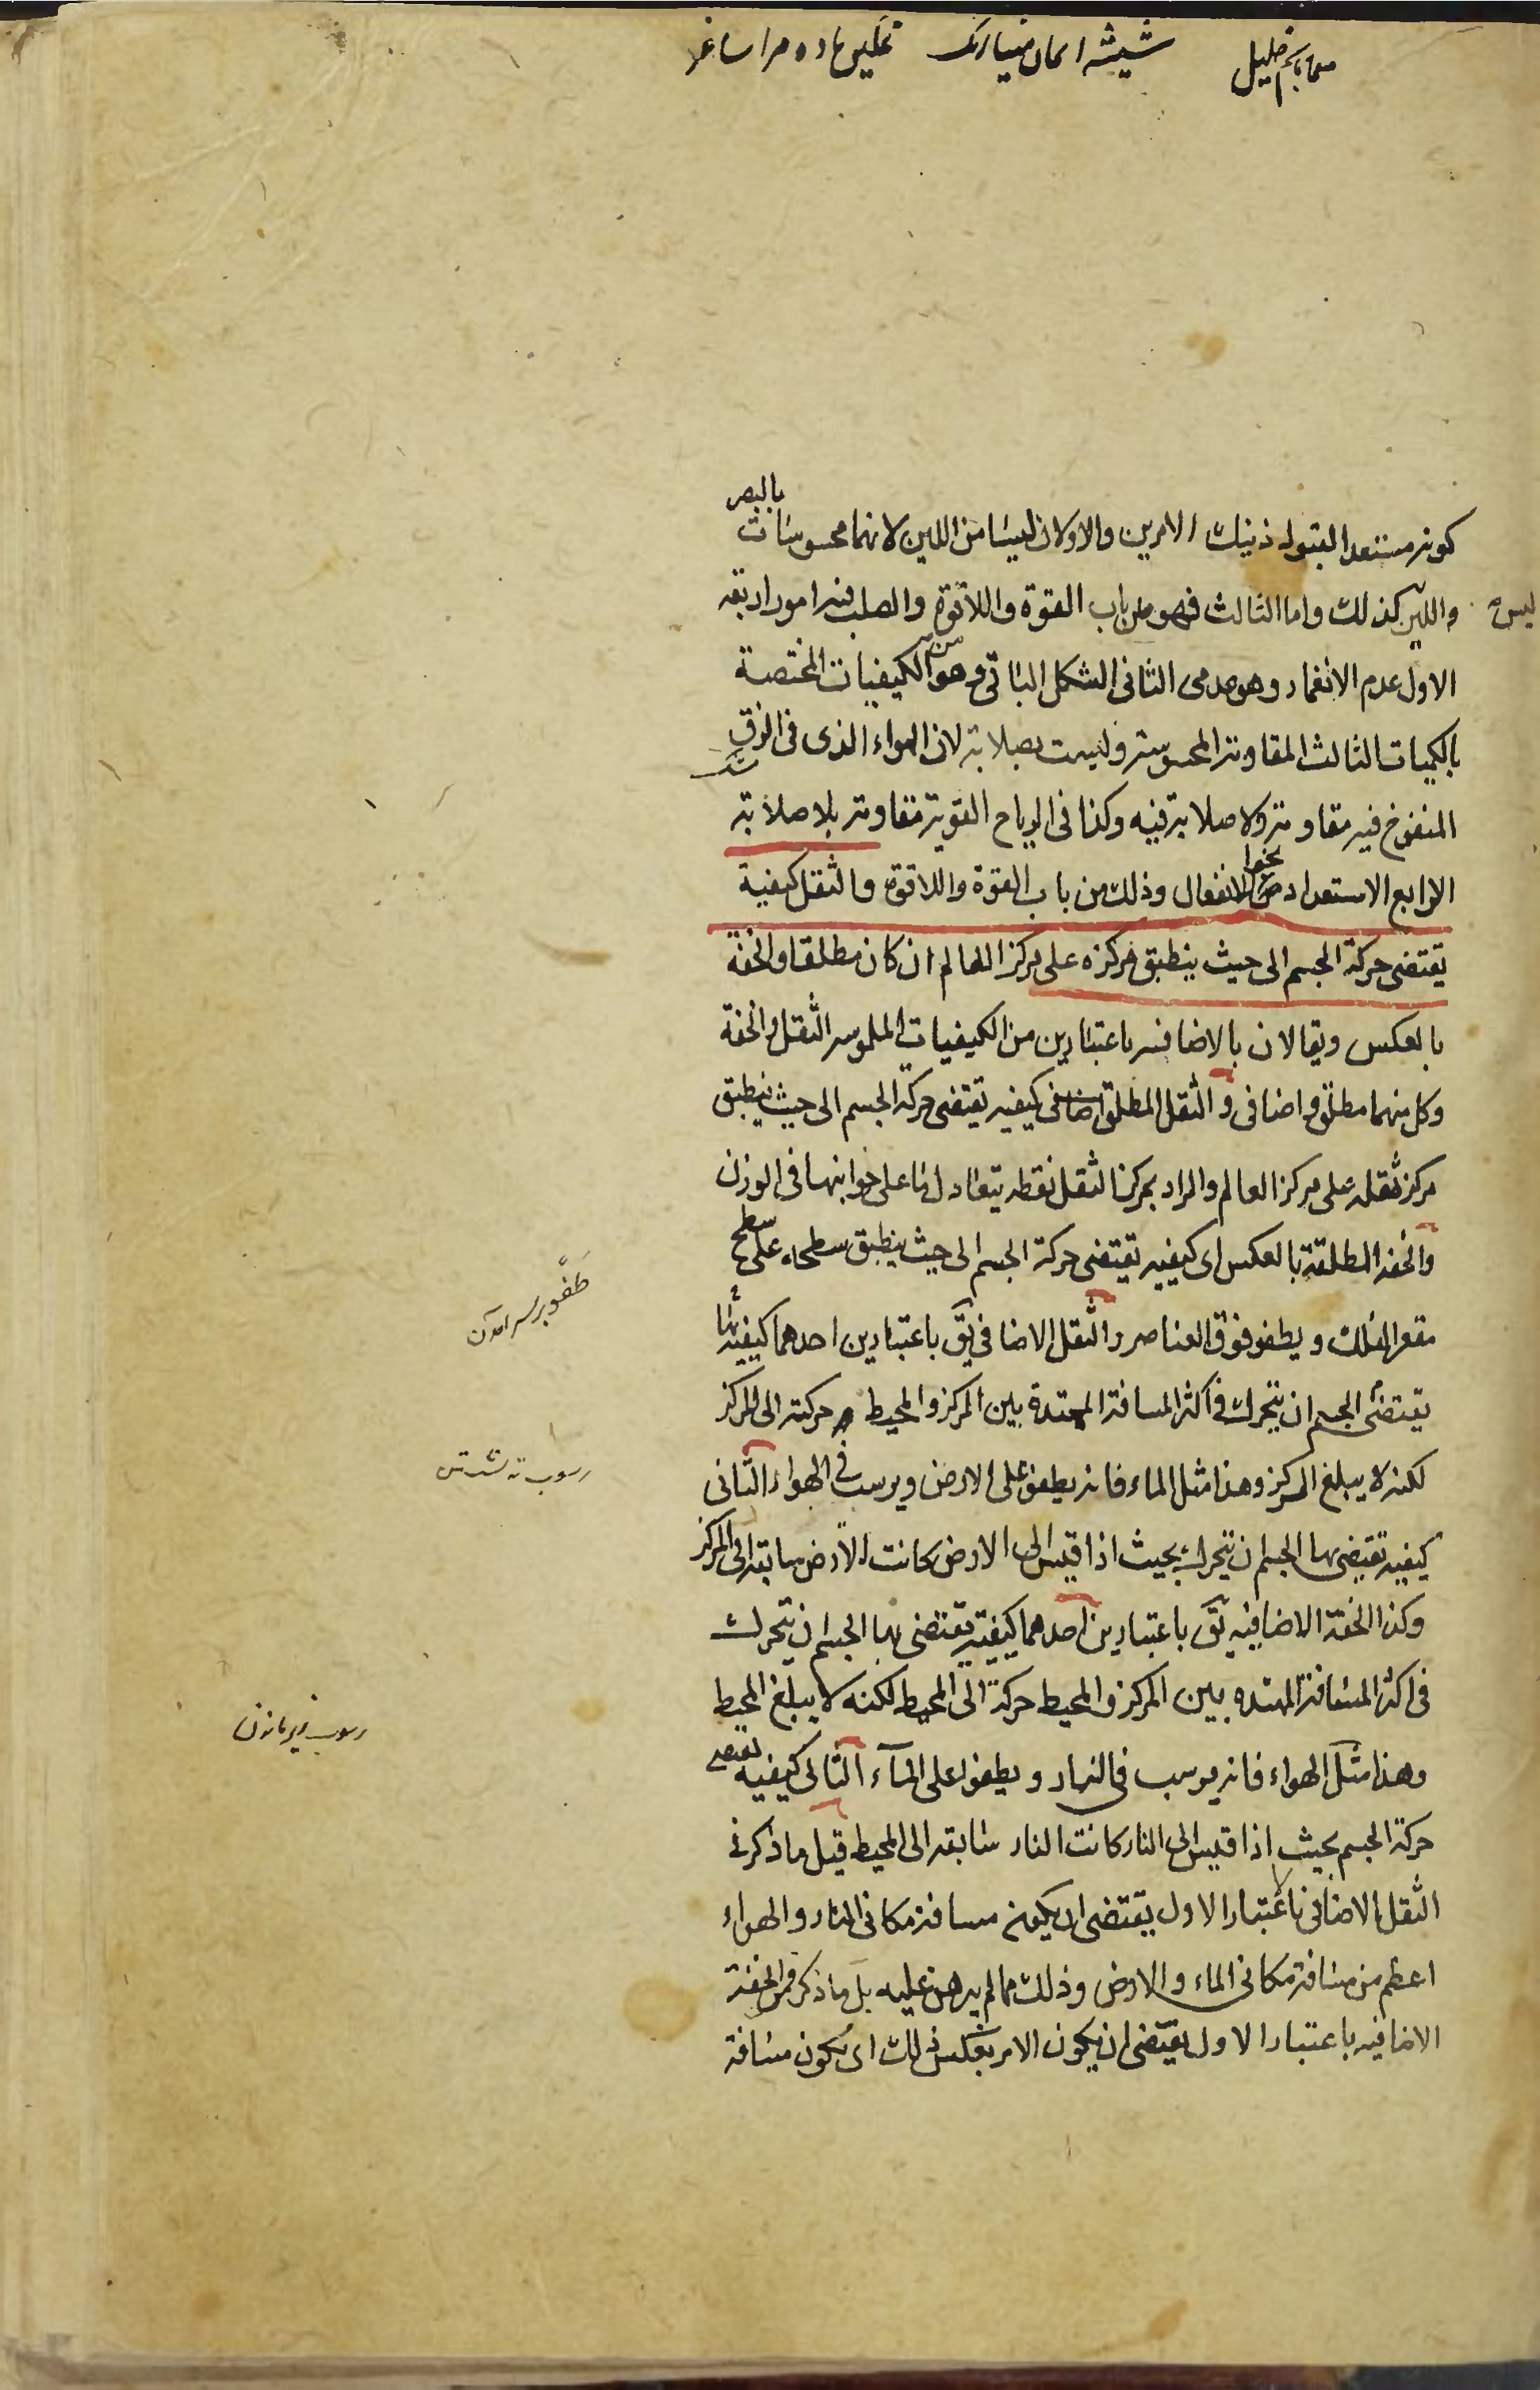 كونه مستعدا لقبول ذينك الامرين والاولان ليسا من اللين لانهما محسوسات بالبصر
واللين ليس كذلك واما الثالث فهو من باب القوة واللاقوة والصلب فيه امور اربعة
الاول عدم الانغمار وهو عدمى الثانى الشكل الباقى وهو من الكيفيات المختصة
بالكميات الثالث المقاومة المحسوسة وليست بصلابة لان الهواء الذى فى الزق
المنفوخ فيه مقاومة ولا صلابة فيه وكذا فى الرياح القوية مقاومة بلا صلابة
الرابع الاستعداد نحو اللانفعال وذلك من باب القوة واللاقوة والثقل كيفية
يقتضى حركة الجسم الى حيث ينطبق مركزه على مركز العالم ان كان مطلقا والخفة
بالعكس ويقالان بالاضافه باعتبارين من الكيفيات الملموسه الثقل والخفة
وكل منهما مطلق واضافى والثقل المطلق كيفيه تقتضى حركة الجسم الى حيث ينطبق
مركز ثقله على مركز العالم والمراد بمركز الثقل نقطه يتعادل ما على جوانبها فى الوزن
والخفه المطلقة بالعكس اى كيفيه تقتضى حركة الجسم الى حيث ينطبق سطحه على سطح
مقعر الفلك ويطفو فوق العناصر والثقل الاضافى يق باعتبارين احدهما كيفيه بها
يقتضى الجسم ان يتحرك فى اكثر المسافة الممتدة بين المركز والمحيط حركته الى المركز
لكنه لا يبلغ المركز وهذا مثل الماء فانه يطفو على الارض ويرسب فى الهواء الثانى
كيفيه تقتضى بها الجسم ان يتحرك بحيث اذا قيس الى الارض كانت الارض سابقه الى المركز
وكذا الخفة الاضافيه تق باعتبارين احدهما كيفية يقتضى بها الجسم ان يتحرك
فى اكثر المسافة الممتده بين المركز والمحيط حركة الى المحيط لكنه لا يبلغ المحيط
وهذا مثل الهواء فانه يرسب فى النار ويطفو على الماء الثانى كيفيه تقتضى
حركة الجسم بحيث اذا قيس الى النار كانت النار سابقه الى المحيط قيل ما ذكر فى
الثقل الاضافى باعتبار الاول يقتضى ان يكون مسافة مكانى النار والهواء
اعظم من مسافة مكانى الماء والارض وذلك مما لم يبرهن عليه بل ما ذكر فى الخفة
الاضافيه باعتبار الاول يقتضى ان يكون الامر بعكس ذلك اى يكون مسافة
طفو بر سر آمدن
رسوب ته نشستن
رسوب